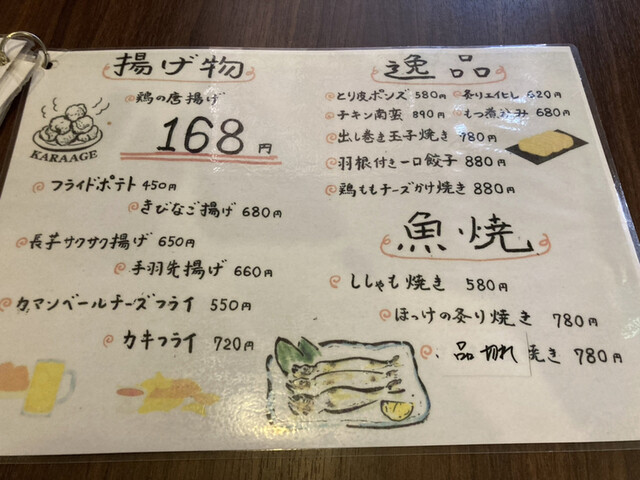 揚げ物
鶏の唐揚げ
168円
KARAAGE
フライドポテト 450円
きびなご揚げ 680円
長芋サクサク揚げ 650円
手羽先揚げ 660円
カマンベールチーズフライ 550円
カキフライ 720円
逸品
とり皮ポンズ 580円 炙りエイヒレ 620円
チキン南蛮 890円 もつ煮込み 680円
出し巻き玉子焼き 780円
羽根付き一口餃子 880円
鶏ももチーズかけ焼き 880円
魚焼
ししゃも焼き 580円
ほっけの炙り焼き 780円
品切れ 焼き 780円